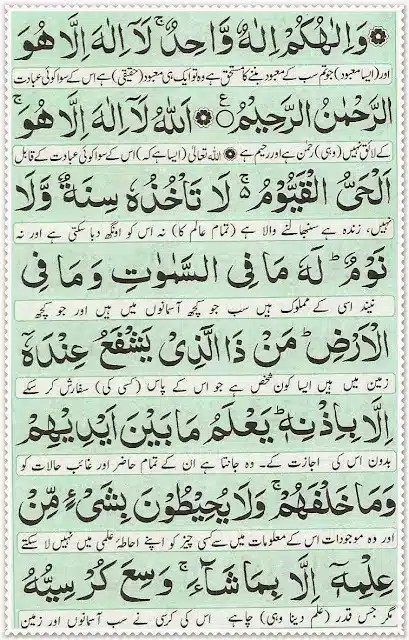 وَاِلٰهُكُمْ اِلٰهٌ وَّاحِدٌ ۚ لَآ اِلٰهَ اِلَّا هُوَ
اور (ایسا معبود) جو تم سب کے معبود بننے کا مستحق ہے وہ تو ایک ہی معبود (حقیقی) ہے اس کے سوا کوئی عبادت
الرَّحْمٰنُ الرَّحِيْمُ ۞ اَللّٰهُ لَآ اِلٰهَ اِلَّا هُوَ ۚ
کے لائق نہیں (وہی) رحمٰن ہے اور رحیم ہے ۞ اللہ تعالیٰ (ایسا ہے کہ) اس کے سوا کوئی عبادت کے قابل
اَلْحَىُّ الْقَيُّوْمُ ۚ لَا تَاْخُذُهٗ سِنَةٌ وَّلَا
نہیں، زندہ ہے سنبھالنے والا ہے (تمام عالم کا) نہ اس کو اونگھ دبا سکتی ہے اور نہ
نَوْمٌ ؕ لَهٗ مَا فِى السَّمٰوٰتِ وَمَا فِى
نیند اسی کے مملوک ہیں سب جو کچھ آسمانوں میں ہیں اور جو کچھ
الْاَرْضِ ؕ مَنْ ذَا الَّذِىْ يَشْفَعُ عِنْدَهٗۤ
زمین میں ہیں ایسا کون شخص ہے جو اس کے پاس (کسی کی) سفارش کر سکے
اِلَّا بِاِذْنِهٖ ؕ يَعْلَمُ مَا بَيْنَ اَيْدِيْهِمْ
بدون اس کی اجازت کے۔ وہ جانتا ہے ان کے تمام حاضر اور غائب حالات کو
وَمَا خَلْفَهُمْ ۚ وَلَا يُحِيْطُوْنَ بِشَىْءٍ مِّنْ
اور وہ موجودات اس کے معلومات میں سے کسی چیز کو اپنے احاطۂ علمی میں نہیں لا سکتے
عِلْمِهٖۤ اِلَّا بِمَا شَآءَ ۚ وَسِعَ كُرْسِيُّهُ
مگر جس قدر (علم دینا وہی) چاہے اس کی کرسی نے سب آسمانوں اور زمین